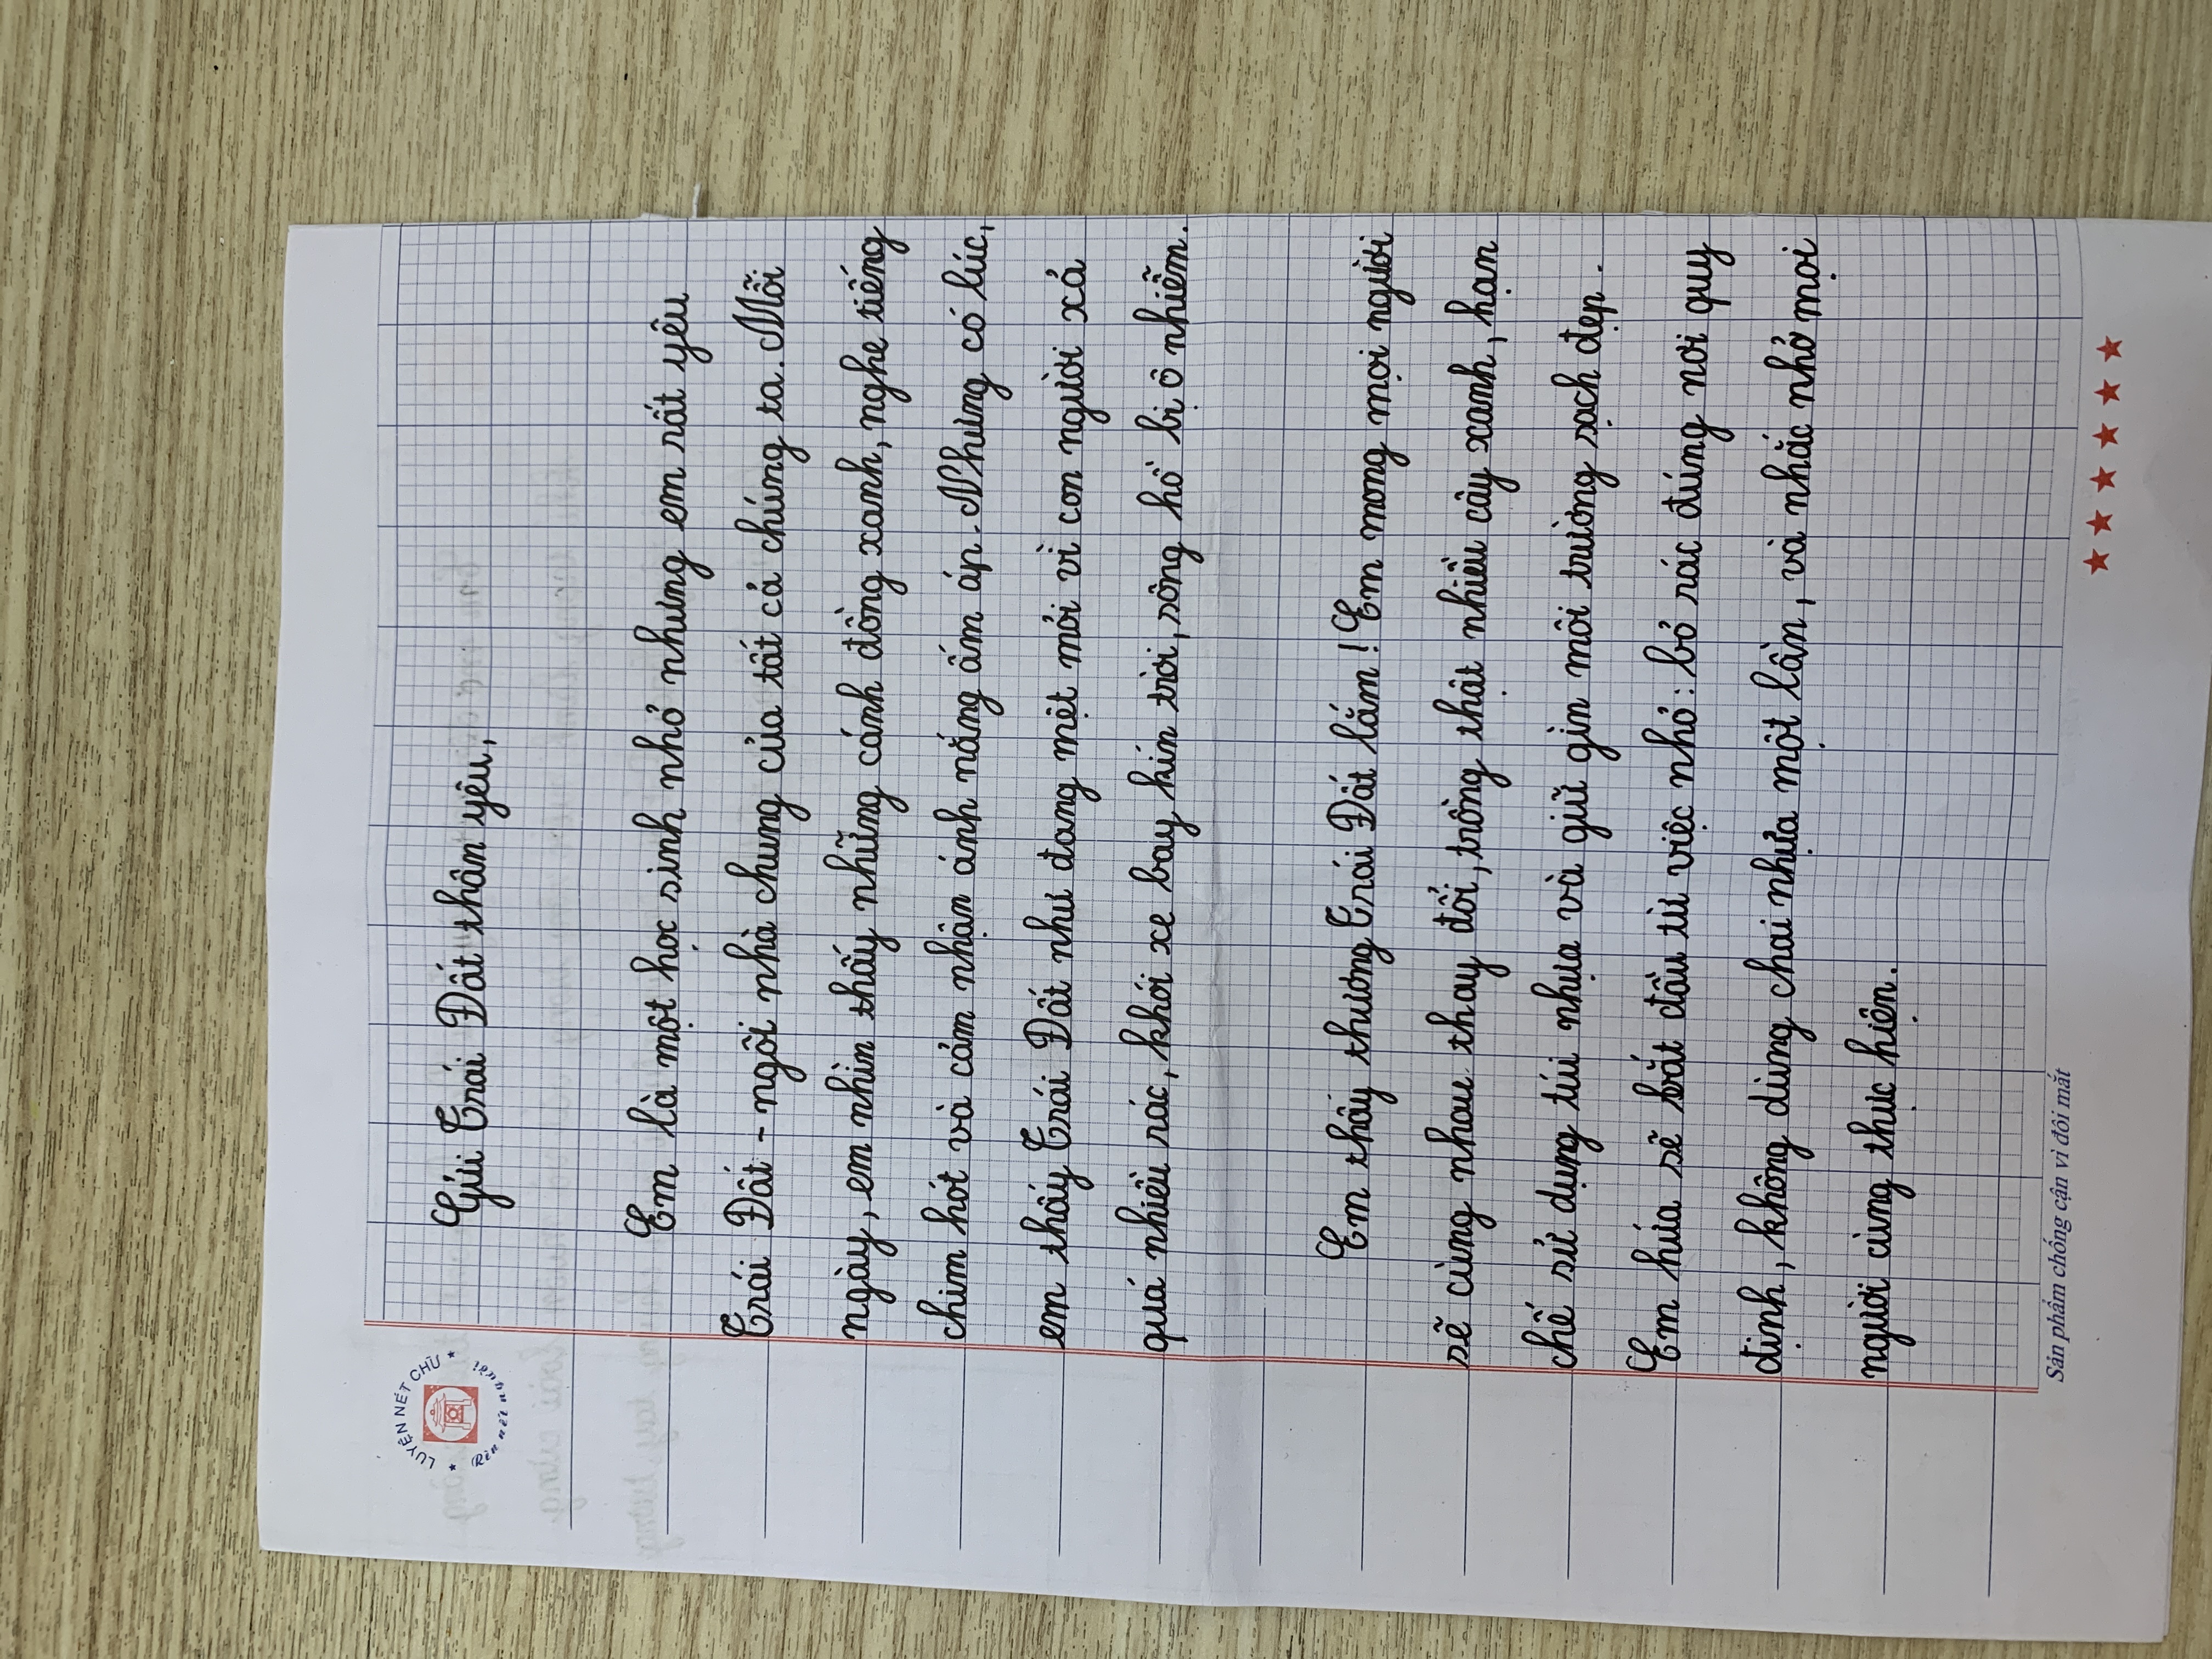 LUYỆN NÉT CHỮ
Rèn nết người
Gửi Trái Đất thân yêu,
Em là một học sinh nhỏ nhưng em rất yêu
Trái Đất - ngôi nhà chung của tất cả chúng ta. Mỗi
ngày, em nhìn thấy những cánh đồng xanh, nghe tiếng
chim hót và cảm nhận ánh nắng ấm áp. Nhưng có lúc,
em thấy Trái Đất như đang mệt mỏi vì con người xả
quá nhiều rác, khói xe bay kín trời, sông hồ bị ô nhiễm.
Em thấy thương Trái Đất lắm! Em mong mọi người
sẽ cùng nhau thay đổi, trồng thật nhiều cây xanh, hạn
chế sử dụng túi nhựa và giữ gìn môi trường sạch đẹp.
Em hứa sẽ bắt đầu từ việc nhỏ: bỏ rác đúng nơi quy
định, không dùng chai nhựa một lần, và nhắc nhở mọi
người cùng thực hiện.
Sản phẩm chống cận vì đôi mắt